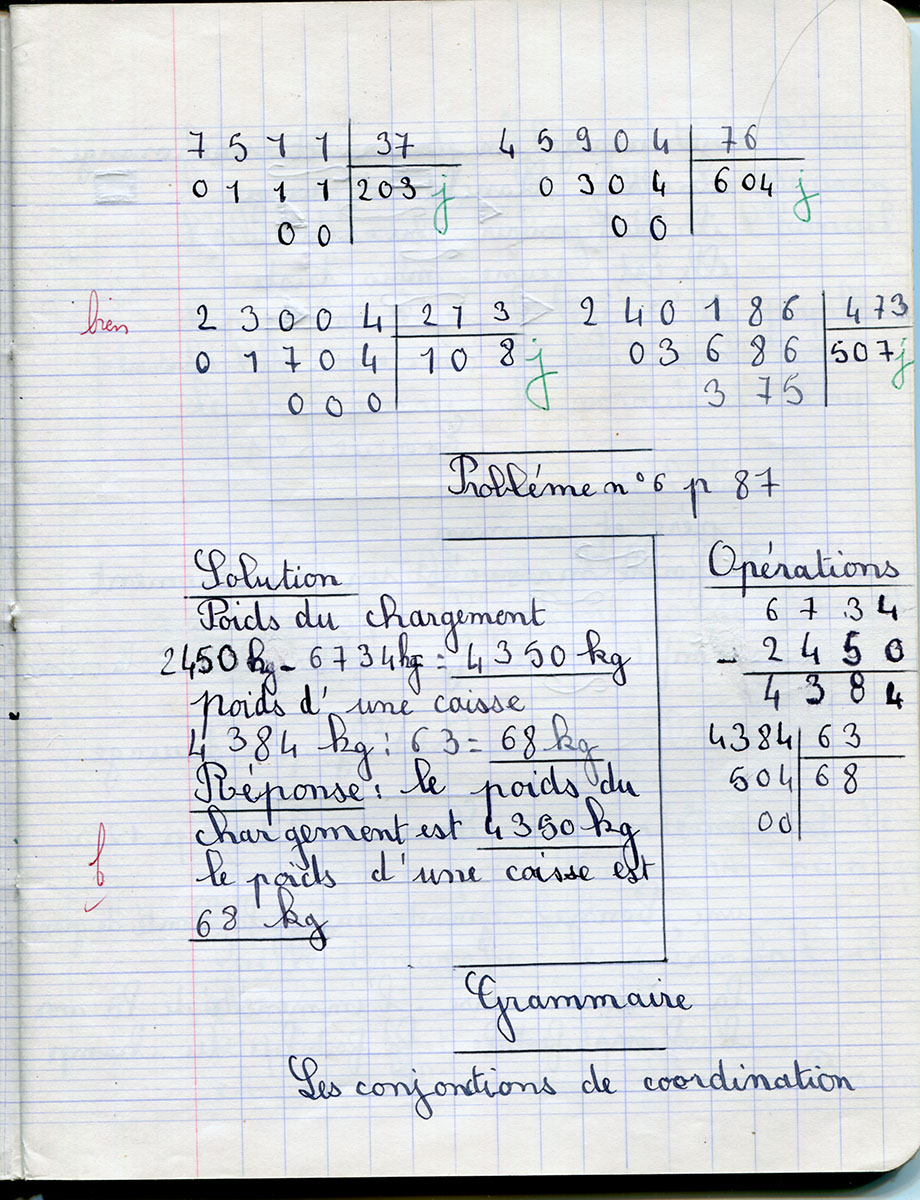 7511 | 37
0111 | 203 j
00
45904 | 76
0304 | 604 j
00
bien
23004 | 213
01704 | 108 j
000
240186 | 473
03686 | 507 j
375
Probléme n°6 p 87
Solution
Poids du chargement
2450 kg - 6734 kg = 4350 kg
poids d'une caisse
4384 kg : 63 = 68 kg
Réponse : le poids du
chargement est 4350 kg
le poids d'une caisse est
68 kg
b
Opérations
6734
- 2450
4384
4384 | 63
504 | 68
00
Grammaire
Les conjonctions de coordination